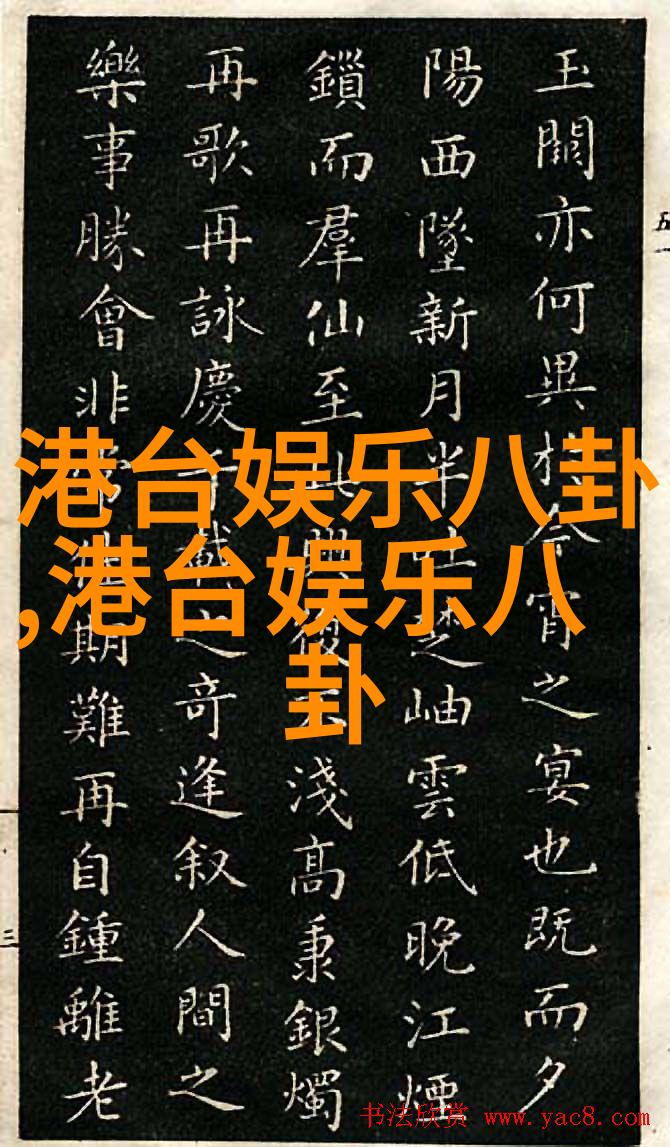 玉闕亦何異今宵之宴也既而夕
陽西墜新月半楚岫雲低晚江煙
鎖而羣仙至此淺高秉銀燭
再歌再詠慶千載之奇逢叙人間之
樂事勝會非常期難再自鍾離老
港台娱乐八卦
,港台娱乐八
卦
五
三
书法欣赏 www.yac8.com